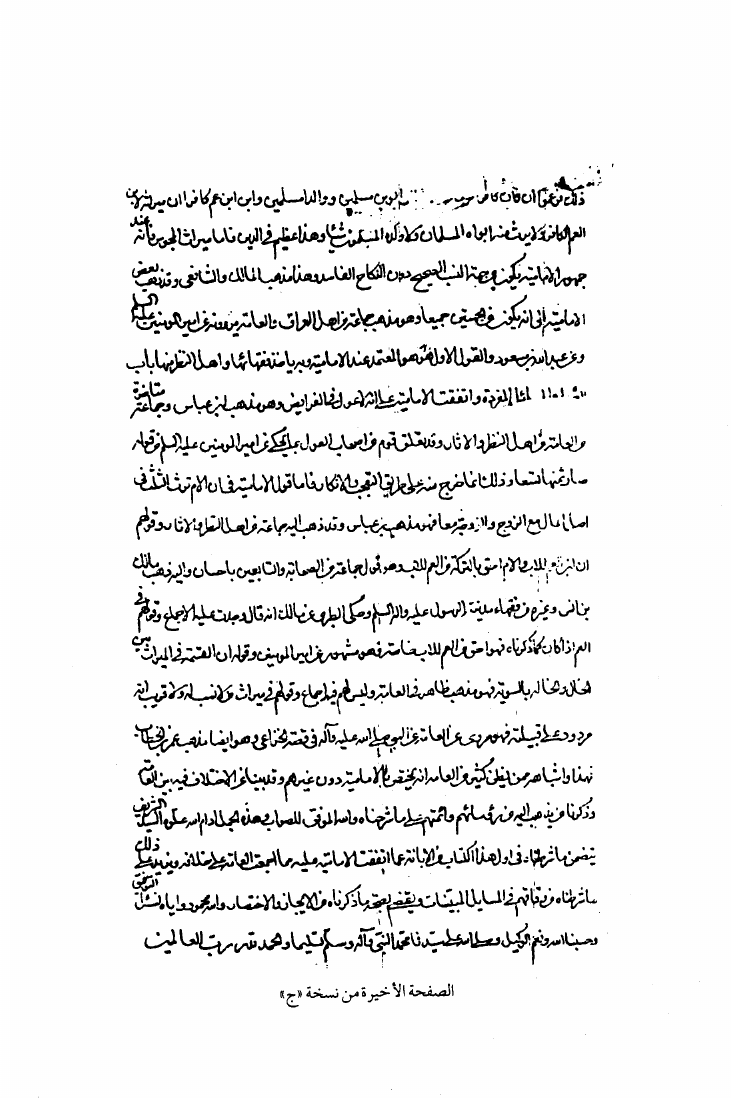 العم الكافر ولا يرثه ابواه المسلمان وهذا عظيم في الدين فاما ميراث المجوس فانه عند
جمهور الامامية يكون من جهة النسب الصحيح دون النكاح الفاسد وهذا مذهب مالك والشافعي وقد ذهب بعض
الامامية الى انه يكون من الجهتين جميعا وهو مذهب جماعة من اهل العراق من العامة يروونه عن امير المؤمنين عليه السلم
وعن عبد الله بن مسعود والقول الاول هو المعتمد عند الامامية وبه يأخذ فقهائها واهل النظر منها باب
واتفقت الامامية على انه لا عول في الفرايض وهو مذهب ابن عباس وجماعة
من العامة من اهل النظر والاثار وقد تعلق قوم من اصحاب العول بما يحكى عن امير المؤمنين عليه السلم من قوله
صار ثمنها تسعا وذلك انما خرج منه على طريق التعجب والانكار فاما قول الامامية في ان الام ترث الثلث من
اصل المال مع الزوج والزوجة معا فهو مذهب بن عباس وقد ذهب اليه جماعة من اهل النظر والاثار وقولهم
ان ابن العم للاب والام احق بالتركة من العم للاب هو قول جماعة من الصحابة والتابعين باحسان واليه ذهب مالك
بن انس وغيره من فقهاء مدينة الرسول عليه واله السلم وحكى الطبري عن مالك انه قال وجدت عليه الاجماع وقولهم في
العم اذا كان كما ذكرناه فهو احق من العم للاب خاصة فهو مشهور عن امير المؤمنين وقوله ان القسمة في الميراث بين
الخال والخالة بالسوية فهو مذهب ظاهر في العامة وليس لهم فيه اجماع وقولهم في ميراث من لا نسب له ولا قريب انه
مردود على قبيلته فهو مروى عن العامة عن النبي صلى الله عليه وآله في قصة الخزاعي وهو ايضا مذهب عمر بن الخطاب
فهذا واشباهه مما يظن كثير من العامة انه يختص بالامامية دون غيرهم وقد بينا عن الاختلاف فيه بين العامة
وذكرنا من يذهب اليه من رؤسائهم وائمتهم على ما شرحناه والله الموفق للصواب وهذه الجملة ادام الله علو السيد الشريف
يتضمن ما شرطناه في اول هذا الكتاب من الابانة عما اتفقت الامامية عليه مما اجمعت العامة على خلافه ويزيد على ذلك
ما شرحناه من وفاقهم في المسايل المبينات ويقضي بصحة ما ذكرناه من الايجاز والاختصار والله محمود واياه نسأل التوفيق
وحسبنا الله ونعم الوكيل وصلى الله على سيدنا محمد النبي وآله وسلم تسليما والحمد لله رب العالمين
الصفحة الأخيرة من نسخة «ج»